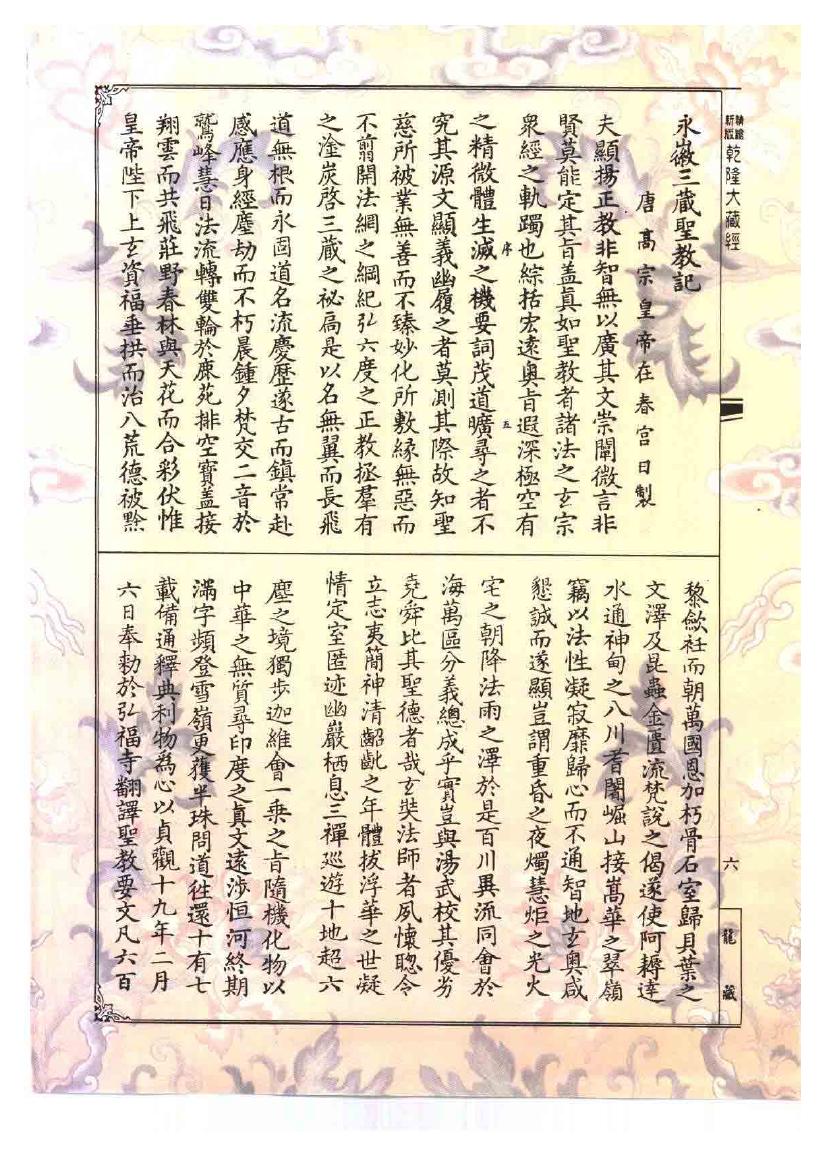 精鐫
新版
乾隆大藏經
永徽三藏聖教記
唐高宗皇帝在春宮日製
夫顯揚正教非智無以廣其文崇闡微言非
賢莫能定其旨盖眞如聖教者諸法之玄宗
衆經之軌躅也綜括宏遠奧旨遐深極空有
序
五
之精微體生滅之機要詞茂道曠尋之者不
究其源文顯義幽履之者莫測其際故知聖
慈所被業無善而不臻妙化所敷緣無惡而
不翦開法網之綱紀弘六度之正教拯羣有
之塗炭啓三藏之祕扃是以名無翼而長飛
道無根而永固道名流慶歷遂古而鎮常赴
感應身經塵劫而不朽晨鍾夕梵交二音於
鷲峰慧日法流轉雙輪於鹿苑排空寶盖接
翔雲而共飛莊野春林與天花而合彩伏惟
皇帝陛下上玄資福垂拱而治八荒德被黔
黎斂衽而朝萬國恩加朽骨石室歸貝葉之
文澤及昆蟲金匱流梵說之偈遂使阿耨達
水通神甸之八川耆闍崛山接嵩華之翠嶺
竊以法性凝寂靡歸心而不通智地玄奧感
懇誠而遂顯豈謂重昏之夜燭慧炬之光火
宅之朝降法雨之澤於是百川異流同會於
海萬區分義總成乎實豈與湯武校其優劣
堯舜比其聖德者哉玄奘法師者夙懷聰令
立志夷簡神清齠齓之年體拔浮華之世凝
情定室匿迹幽巖栖息三禪巡遊十地超六
塵之境獨步迦維會一乘之旨隨機化物以
中華之無質尋印度之真文遠涉恒河終期
滿字頻登雪嶺更獲半珠問道徃還十有七
載備通釋典利物為心以貞觀十九年二月
六日奉勑於弘福寺翻譯聖教要文凡六百
六
龍藏